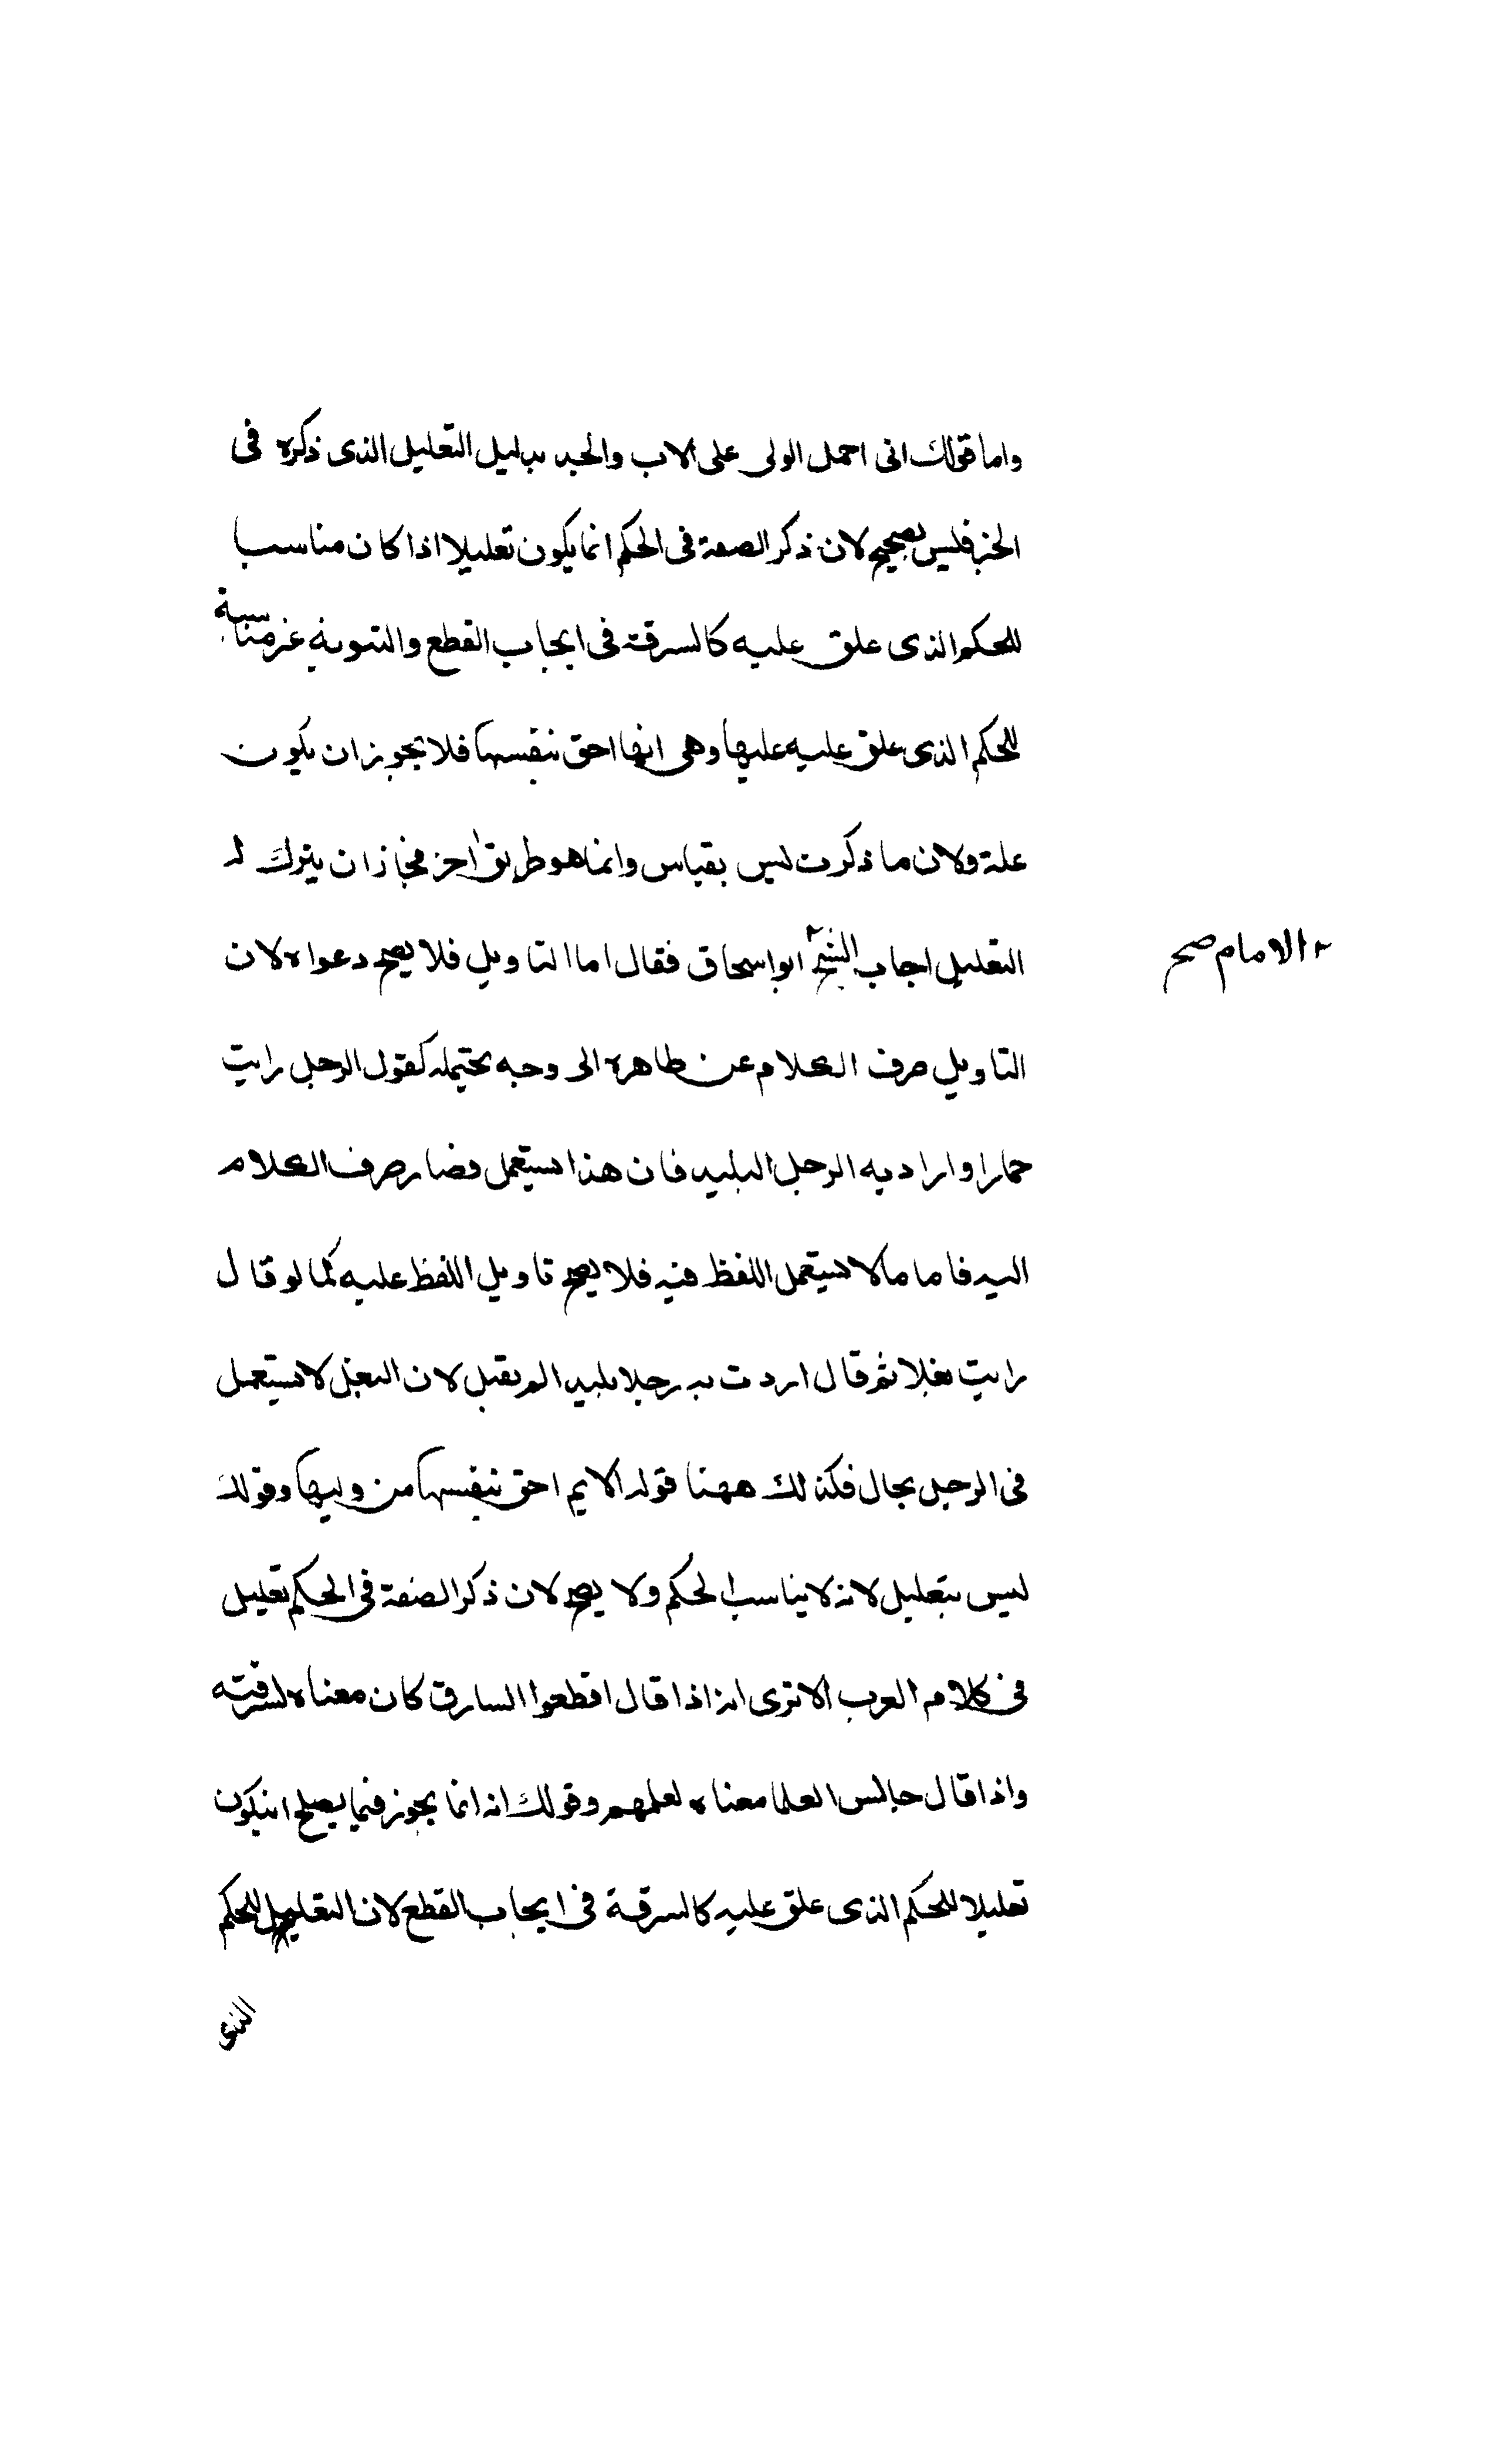 واما قولك انى احمل الولى على الاب والجد بدليل التعليل الذى ذكره فى
الخبر فليس بصحيح لان ذكر الصفة فى الحكم انما يكون تعليلا اذا كان مناسبا
للحكم الذى علق عليه كالسرقة فى ايجاب القطع والثيوبة غير مناسبة
للحكم الذى علق عليه عليها وهى انها احق بنفسها فلا يجوز ان يكون
علة ولان ما ذكرت ليس بقياس وانما هو طريق اخر فجاز ان يترك له
التعليل اجاب الشيخ ابو اسحاق فقال اما التاويل فلا يصح دعواه لان
الامام صح
التاويل صرف الكلام عن ظاهره الى وجه يحتمله كقول الرجل رايت
حمارا واراد به الرجل البليد فان هذا مستعمل فصار صرف الكلام
اليه فاما ما لا يستعمل اللفظ فيه فلا يصح تاويل اللفظ عليه كما لو قال
رايت بغلا ثم قال اردت به رجلا بليدا لم يقبل لان البغل لا يستعمل
فى الرجل بحال فكذلك ههنا قوله الايم احق بنفسها من وليها وقولك
ليس بتعليل لانه لا يناسب الحكم ولا يصح لان ذكر الصفة فى الحكم تعليل
فى كلام العرب الا ترى انه اذا قال اقطعوا السارق كان معناه لسرقته
واذا قال جالس العلما معناه لعلمهم وقولك انه انما يجوز فيما يصلح ان يكون
تعليلا للحكم الذى علق عليه كالسرقة فى ايجاب القطع لان التعليل للحكم
الذى